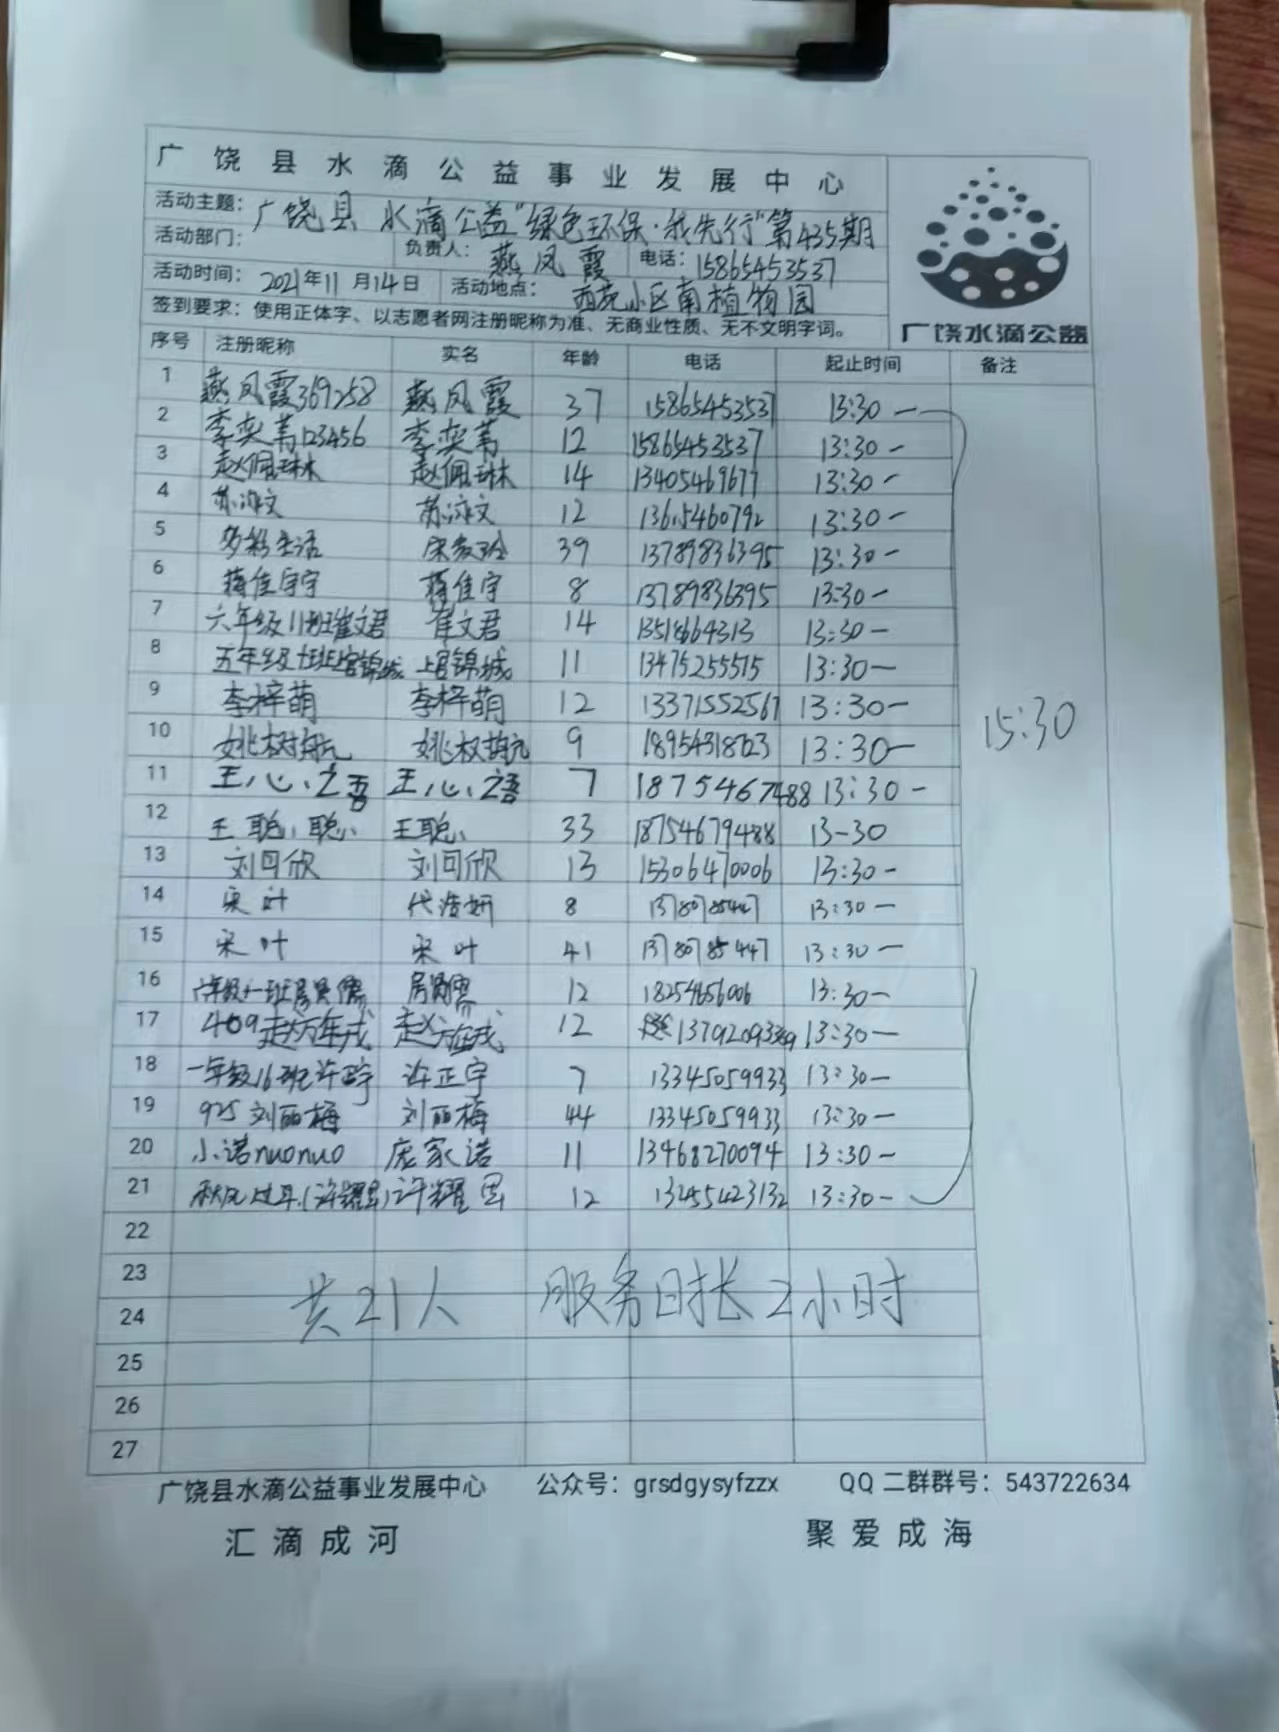 广饶县水滴公益事业发展中心
活动主题：广饶县水滴公益"绿色环保·我先行"第435期
活动部门： 负责人：燕凤霞 电话：15865453537
活动时间：2021年11月14日 活动地点：西苑小区南植物园
签到要求：使用正体字、以志愿者网注册昵称为准、无商业性质、无不文明字词。
广饶水滴公益
序号 注册昵称 实名 年龄 电话 起止时间 备注
1 燕凤霞369258 燕凤霞 37 15865453537 13:30—
2 李奕苇123456 李奕苇 12 15865453537 13:30—
3 赵佩琳 赵佩琳 14 13405469677 13:30—
4 12 13615460792 13:30—
5 多彩生活 39 13789836395 13:30—
6 蒋佳宇宇 蒋佳宇 8 13789836395 13:30—
7 六年级11班崔文君 崔文君 14 13518664313 13:30—
8 五年级七班上官锦城 上官锦城 11 13475255515 13:30—
9 李梓萌 李梓萌 12 13371552567 13:30—
10 9 13:30—
15:30
11 王心之吾 王心之语 7 18754679488 13:30—
12 王聪聪 王聪 33 18754679488 13-30
13 刘可欣 刘可欣 13 15306470006 13:30—
14 宋叶 8 13780785447 13:30—
15 宋叶 宋叶 41 13780785447 13:30—
16 12 18254656006 13:30—
17 409 12 13:30—
18 一年级16班许正宇 许正宇 7 13345059933 13:30—
19 925刘丽梅 刘丽梅 44 13345059933 13:30—
20 小诺nuonuo 庞家诺 11 13468270094 13:30—
21 12 13455423132 13:30—
22
23
共21人 服务时长2小时
24
25
26
27
广饶县水滴公益事业发展中心 公众号：grsdgysyfzzx QQ 二群群号：543722634
汇滴成河 聚爱成海